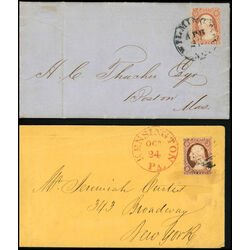 WILMINGT
APR
H. C. Thacher Esqr
Boston
Mas.
KENSINGTON
OCT
24
Pa.
Mr Jeremiah Curtis
343 Broadway
New York